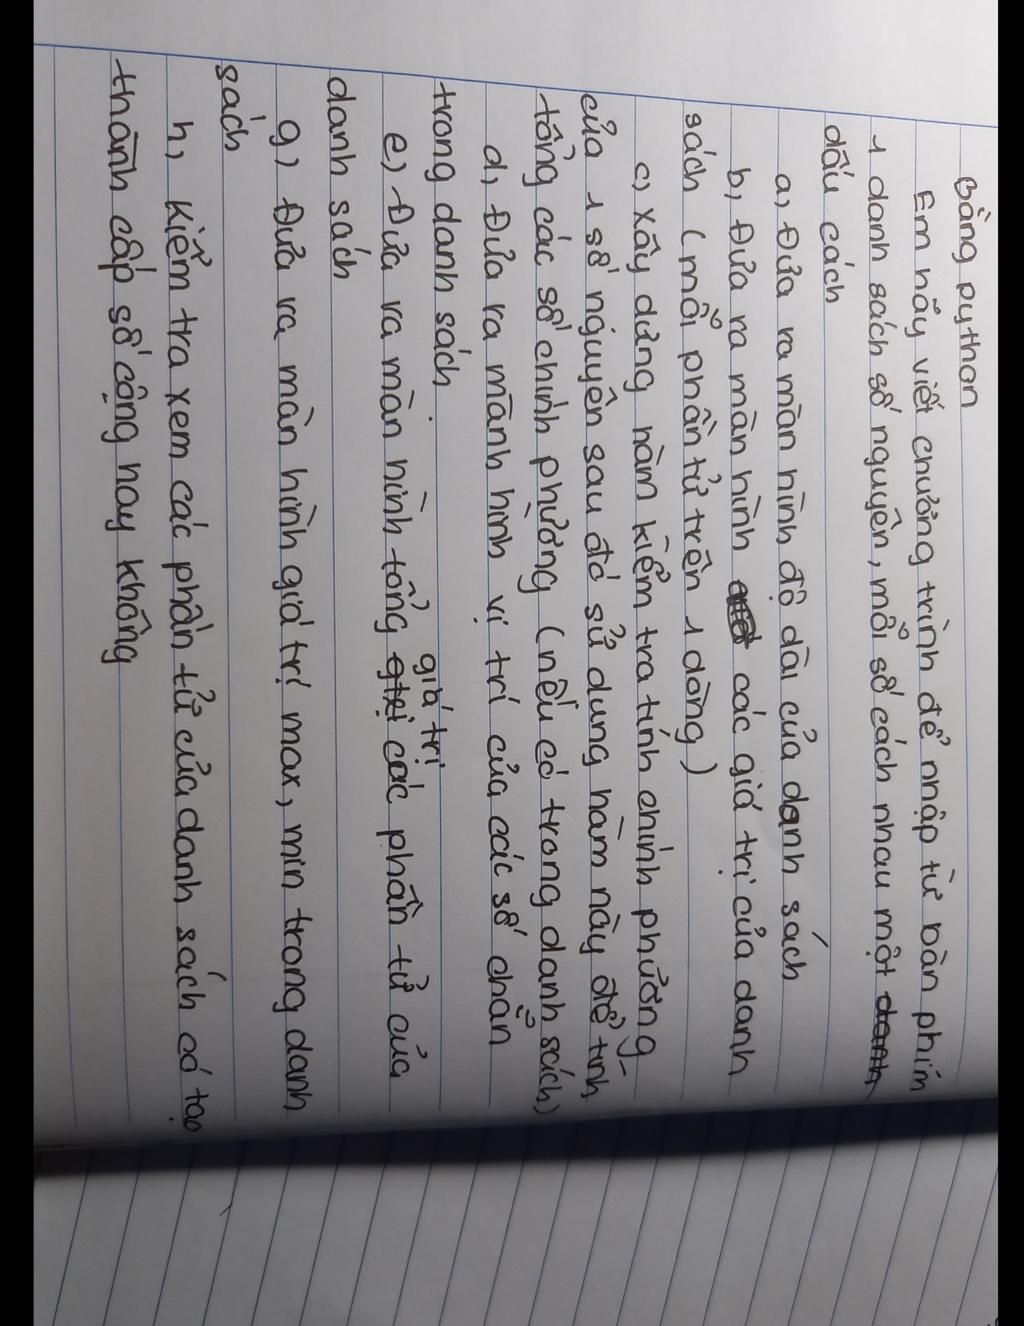 Bằng python
Em hãy viết chương trình để nhập từ bàn phím
1 danh sách số nguyên, mỗi số cách nhau một
dấu cách
a, Đưa ra màn hình độ dài của danh sách
b, Đưa ra màn hình các giá trị của danh
sách (mỗi phần tử trên 1 dòng)
c, xây dựng hàm kiểm tra tính chính phương
của 1 số nguyên sau đó sử dụng hàm này để tính
tổng các số chính phương (nếu có trong danh sách)
d, Đưa ra mành hình vị trí của các số chẵn
trong danh sách
e, Đưa ra màn hình tổng giá trị các phần tử của
danh sách
g, Đưa ra màn hình giá trị max, min trong danh
sách
h, kiểm tra xem các phần tử của danh sách có tạo
thành cấp số cộng hay không